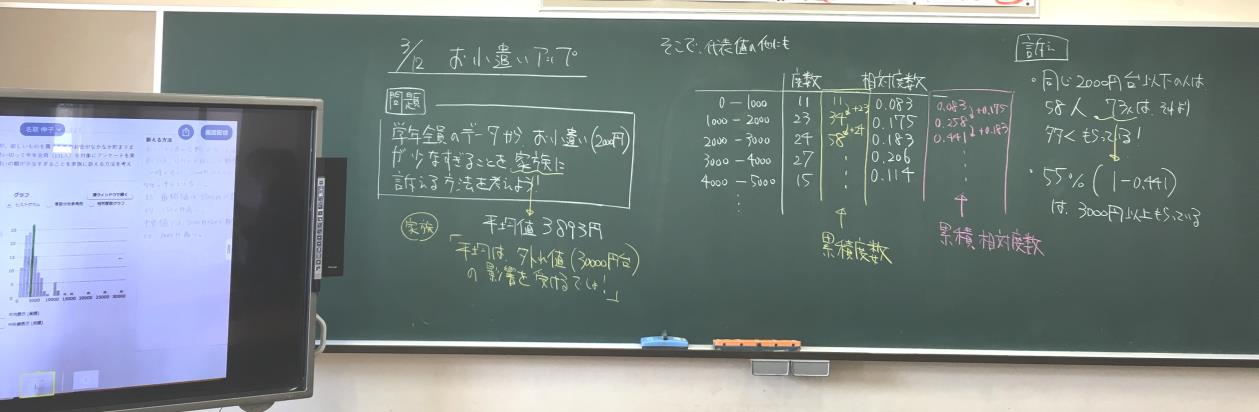 3/12 お小遣いアップ
問題
学年全員のデータから お小遣い(2000円)
が少なすぎることを、家族に
訴える方法を考えよう!
家族
平均値 3893円
「平均は、外れ値(30000円台)
の影響を受けるでしょ!」
そこで、代表値の他にも
度数 相対度数
0 — 1000 11 11 0.083 0.083
1000 — 2000 23 34 0.175 0.258
2000 — 3000 24 58 0.183 0.441
3000 — 4000 27 0.206
4000 — 5000 15 0.114
+23
+24
+0.175
+0.183
累積度数
累積相対度数
訴え
・同じ2000円台以下の人は
58人、73人は、それより
多くもらってる!
・55%(1-0.441)
は、3000円以上もらっている
訴える方法
画面配信
グラフ
ヒストグラム
相対度数グラフ
5000 10000 15000 20000 25000 30000